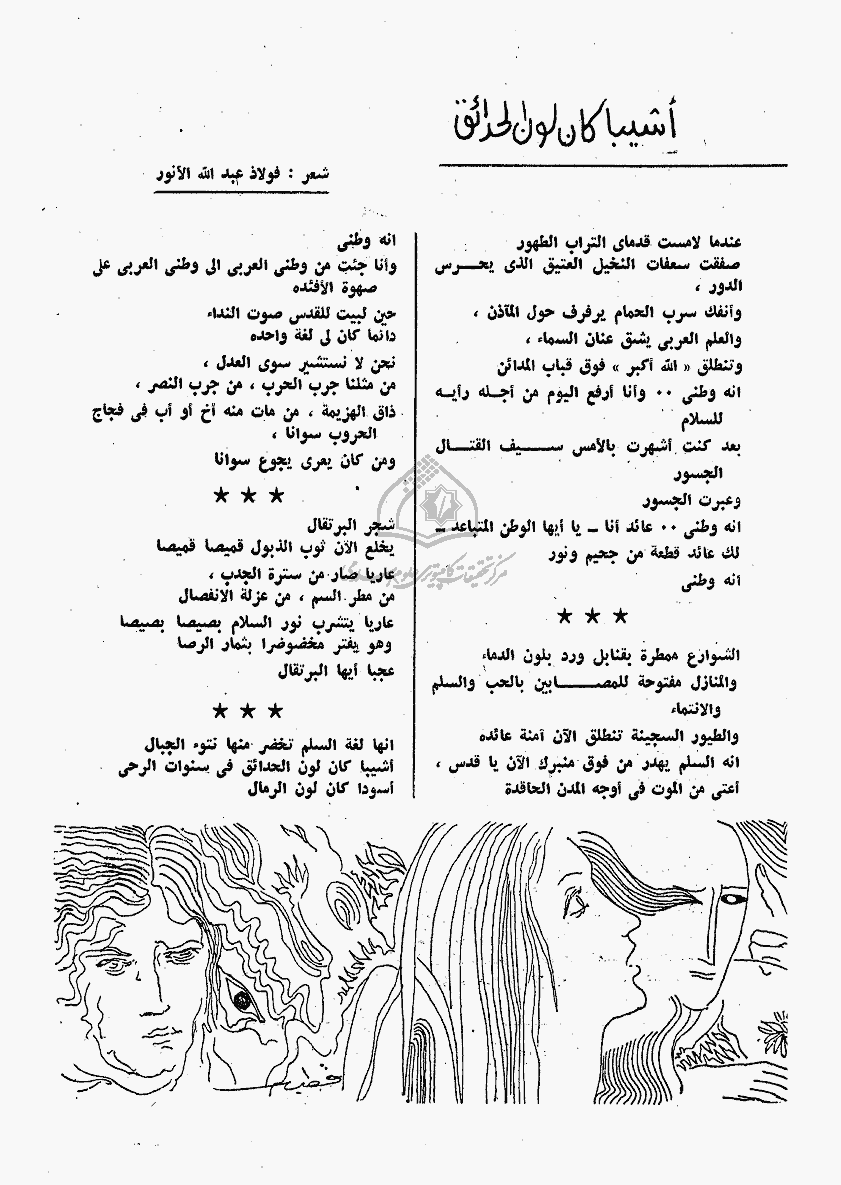 أشيبا كان لون الحدائق
شعر : فولاذ عبد الله الأنور
عندما لامست قدماى التراب الطهور
صفقت سعفات النخيل العتيق الذى يحرس
الدور ،
وأنفك سرب الحمام يرفرف حول المآذن ،
والعلم العربى يشق عنان السماء ،
وتنطلق « الله أكبر » فوق قباب المدائن
انه وطنى ٠٠ وأنا أرفع اليوم من أجله رأيه
للسلام
بعد كنت أشهرت بالأمس سيف القتال
الجسور
وعبرت الجسور
انه وطنى ٠٠ عائد أنا ـ يا أيها الوطن المتباعد ـ
لك عائد قطعة من جحيم ونور
انه وطنى
★ ★ ★
الشوارع ممطرة بقنابل ورد بلون الدماء
والمنازل مفتوحة للمصابين بالحب والسلم
والانتماء
والطيور السجينة تنطلق الآن آمنة عائده
انه السلم يهدر من فوق منبرك الآن يا قدس ،
أعتى من الموت فى أوجه المدن الحاقدة
انه وطنى
وأنا جئت من وطنى العربى الى وطنى العربى على
صهوة الأفئده
حين لبيت للقدس صوت النداء
دائما كان لى لغة واحده
نحن لا نستشير سوى العدل ،
من مثلنا جرب الحرب ، من جرب النصر ،
ذاق الهزيمة ، من مات منه أخ أو أب فى فجاج
الحروب سوانا ،
ومن كان يعرى يجوع سوانا
★ ★ ★
شجر البرتقال
يخلع الآن ثوب الذبول قميصا قميصا
عاريا صار من سترة الجدب ،
من مطر السم ، من عزلة الانفصال
عاريا يتشرب نور السلام بصيصا بصيصا
وهو يفتر مخضوضرا بثمار الرصا
عجبا أيها البرتقال
★ ★ ★
انها لغة السلم تخضر منها نتوء الجبال
أشيبا كان لون الحدائق فى سنوات الرحى
أسودا كان لون الرمال
مركز تحقيقات كامپيوترى علوم اسلامى